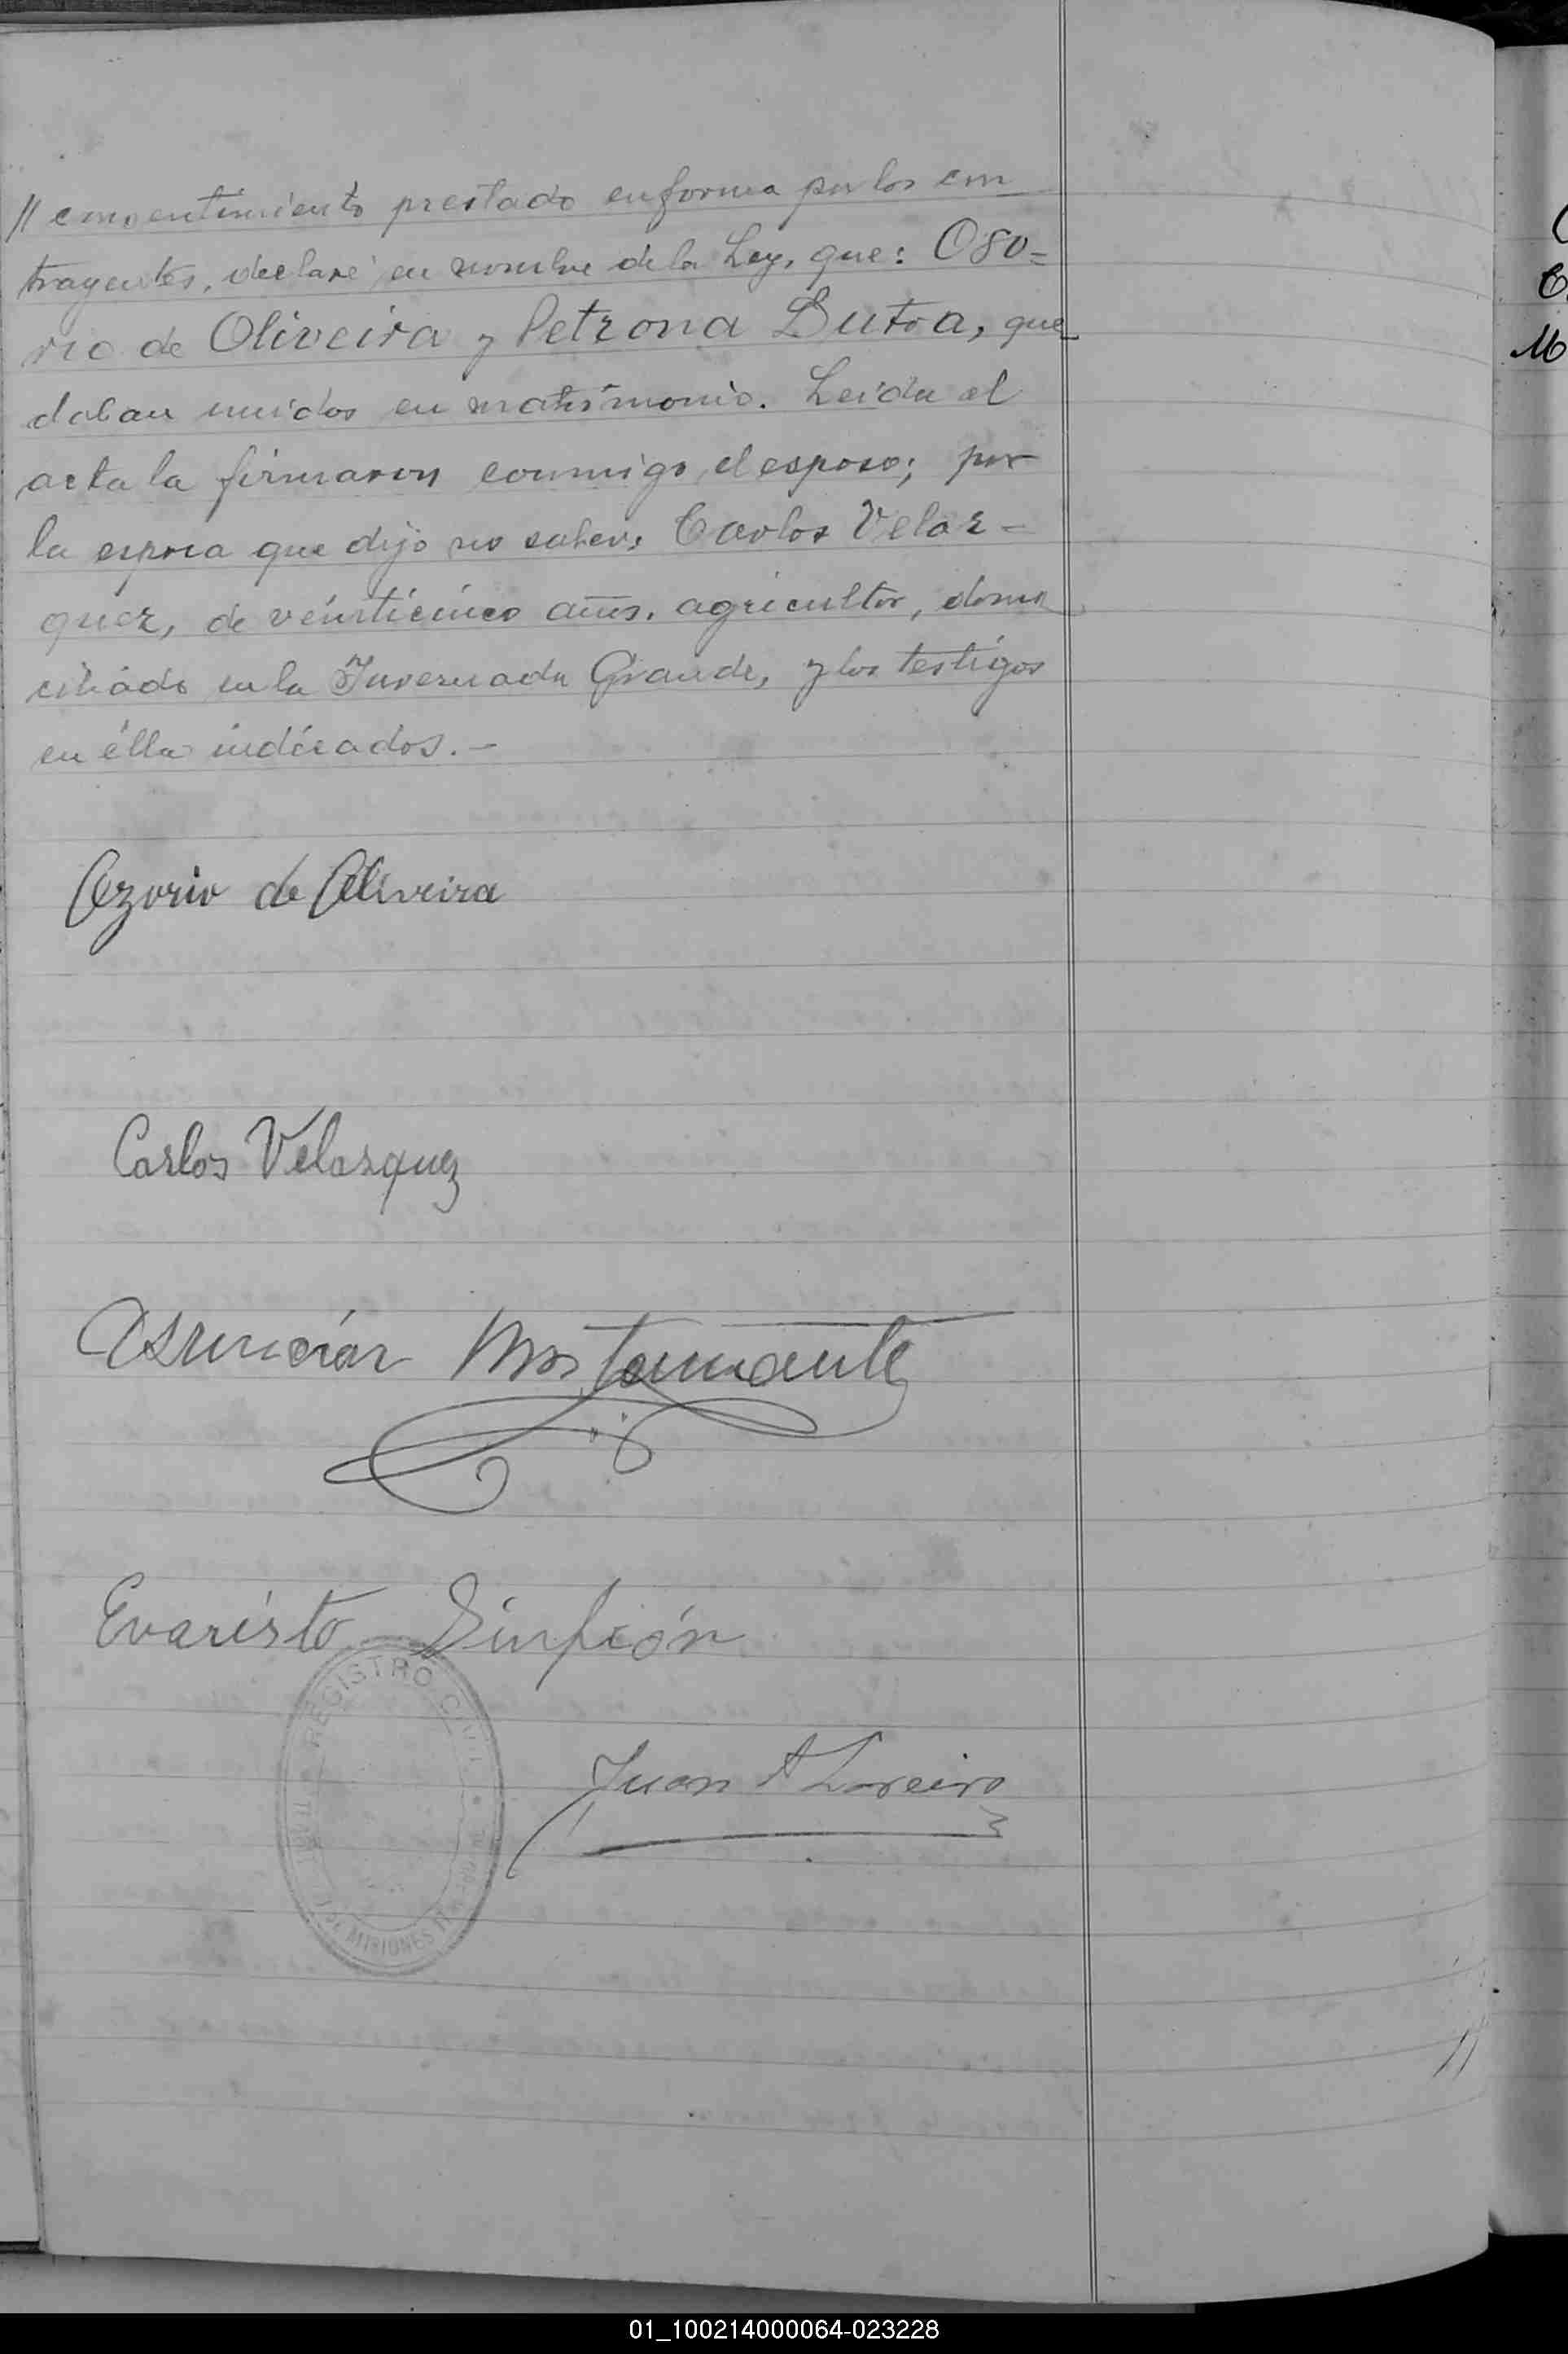 // consentimiento prestado en forma por los con
trayentes, declaré en nombre de la Ley, que: Oso=
rio de Oliveira y Petrona Dutra, que
daban unidos en matrimonio. Leída el
acta la firmaron conmigo, el esposo; por
la esposa que dijo no saber, Carlos Velaz-
quez, de veinticinco años, agricultor, domi
ciliado en la Invernada Grande, y los testigos
en élla indicados.-
Ozorio de Oliveira
Carlos Velazquez
Asunción Mostamante
Evaristo Sinfión
REGISTRO CIVIL
MISIONES
Juan A Loreiro
//
C
M
01_100214000064-023228